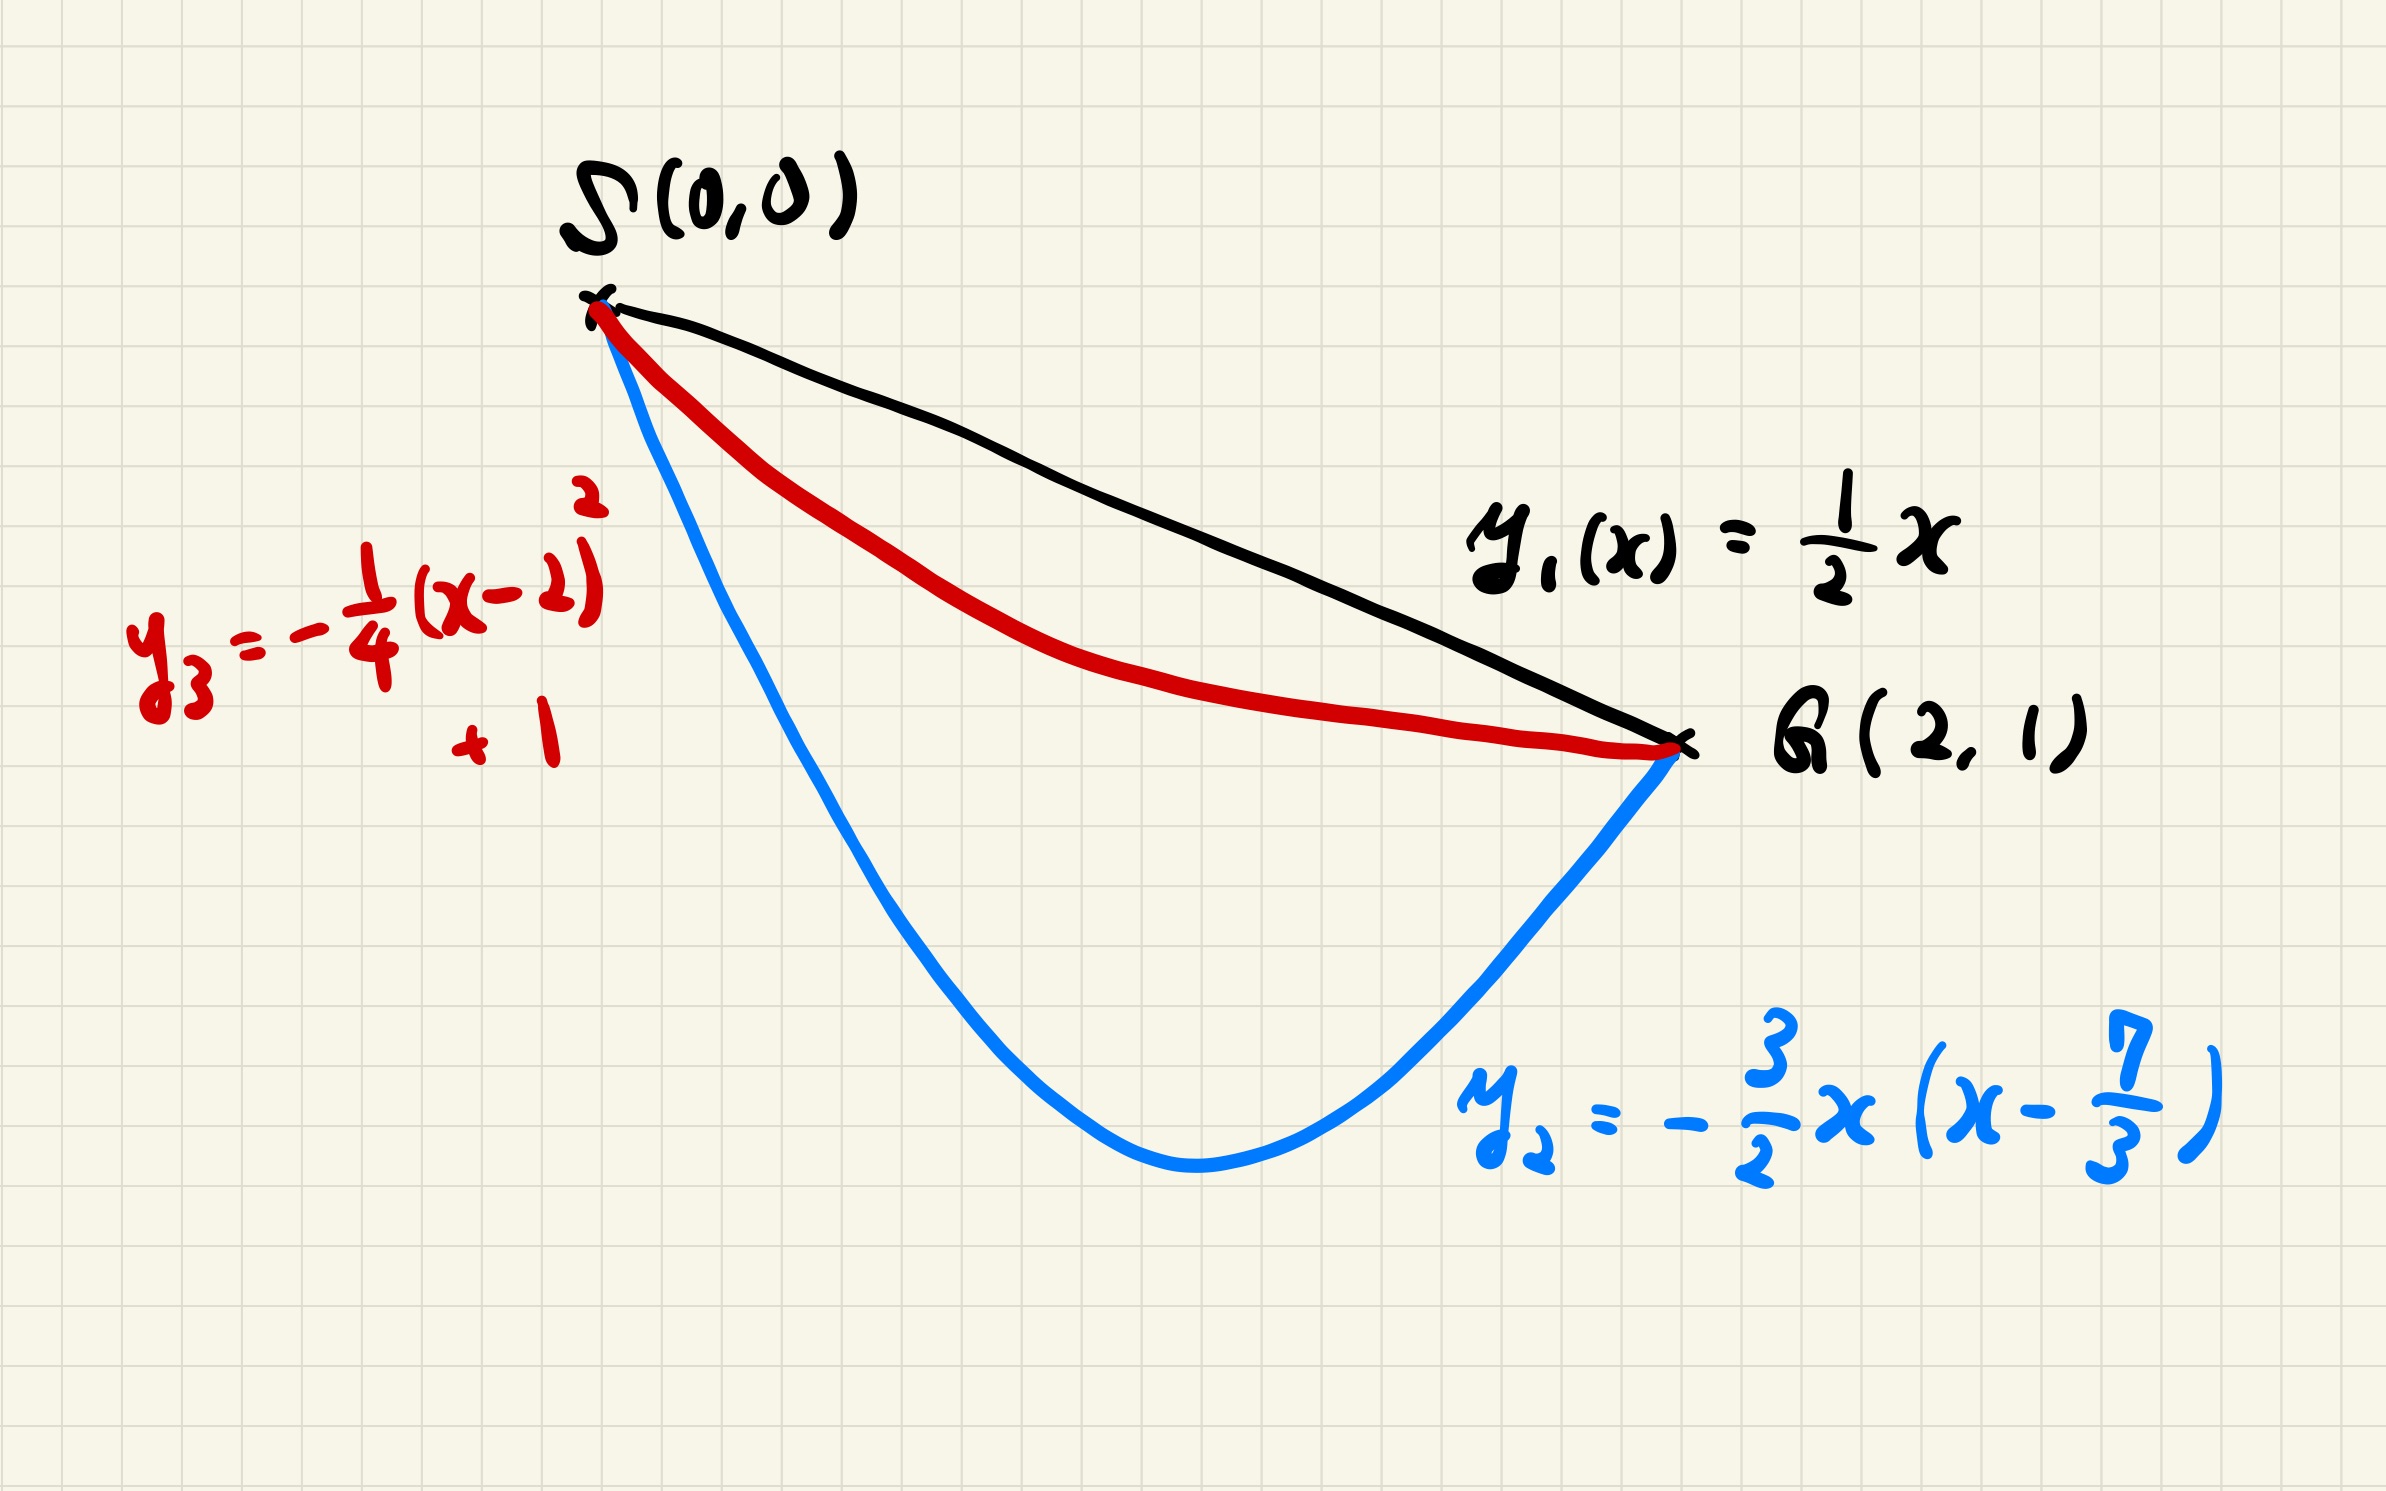 S(0,0)
y₁(x) = 1/2 x
y₃ = - 1/4 (x - 2)²
+ 1
G(2, 1)
y₂ = - 3/2 x (x - 7/3)